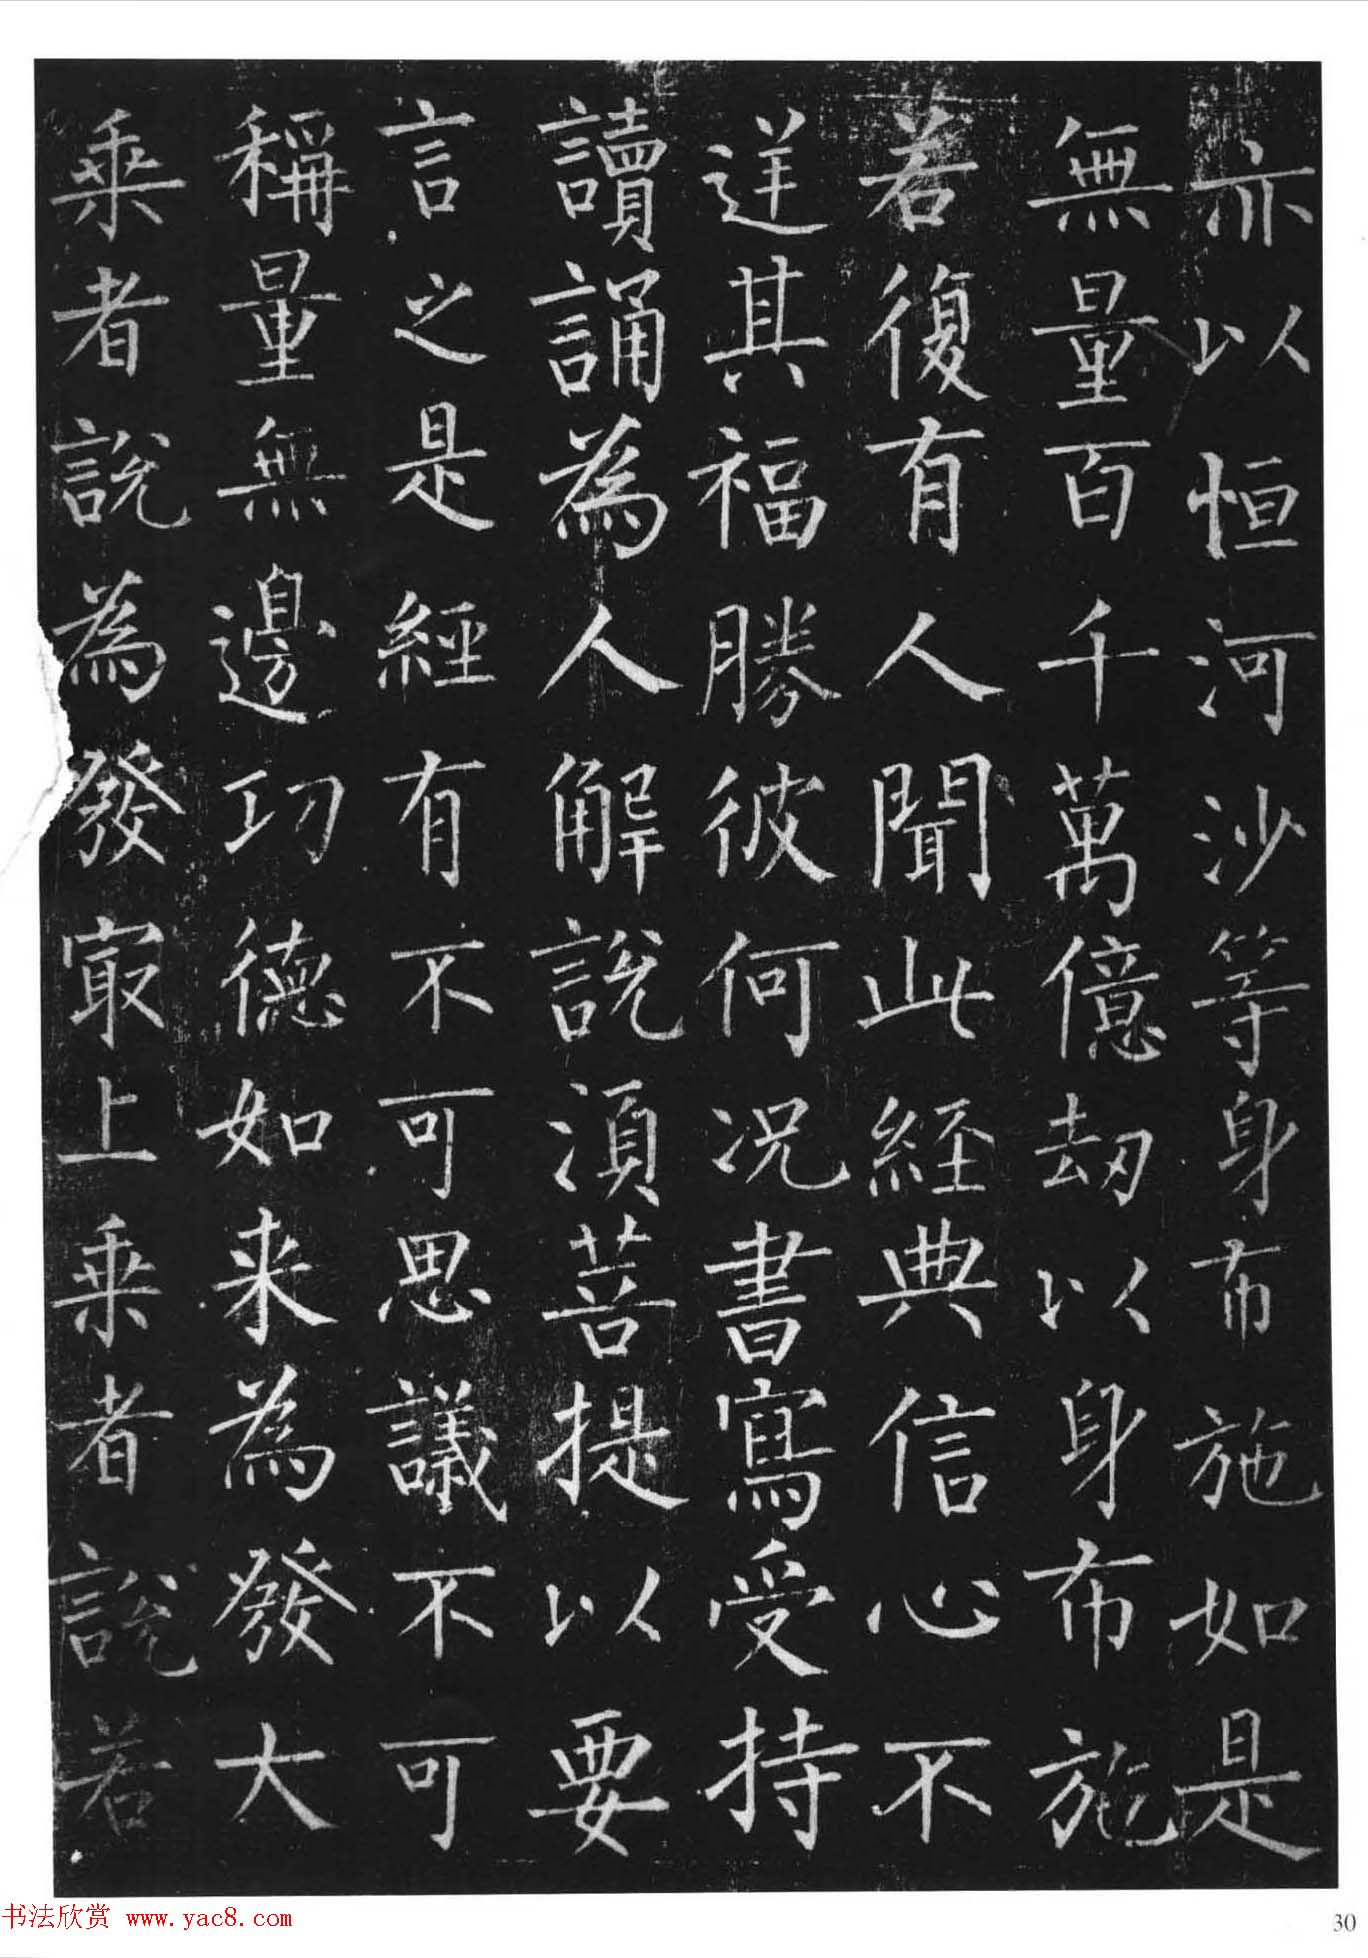 亦以恒河沙等身布施如是
無量百千萬億劫以身布施
若復有人聞此經典信心不
逆其福勝彼何況書寫受持
讀誦為人解說須菩提以要
言之是經有不可思議不可
稱量無邊功德如来為發大
乘者說為發冣上乘者說若
书法欣赏 www.yac8.com
30